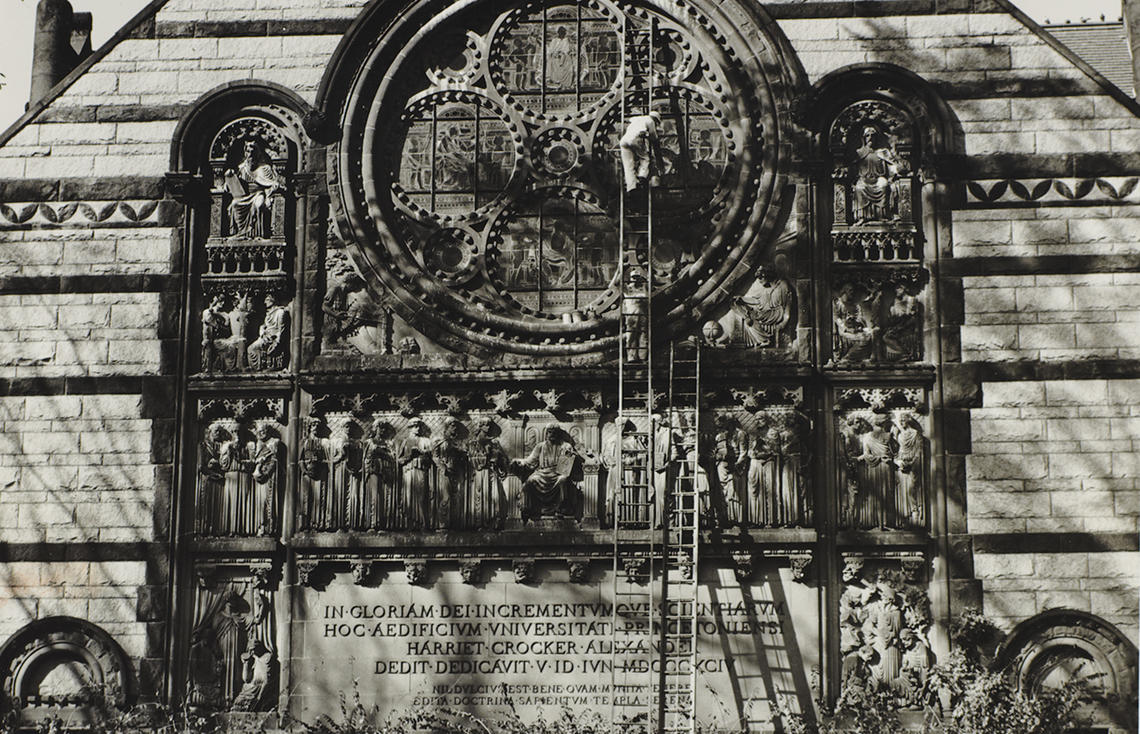 IN·GLORIAM·DEI·INCREMENTVMQVE·SCIENTIARVM
HOC·AEDIFICIVM·VNIVERSITATI·PRINCETONIENSI
HARRIET·CROCKER·ALEXANDER
DEDIT·DEDICAVIT·V·ID·IVN·MDCCCXCIV
NIL·DVLCIVS·EST·BENE·QVAM·MVNITA·TENERE
EDITA·DOCTRINA·SAPIENTVM·TEMPLA·SERENA